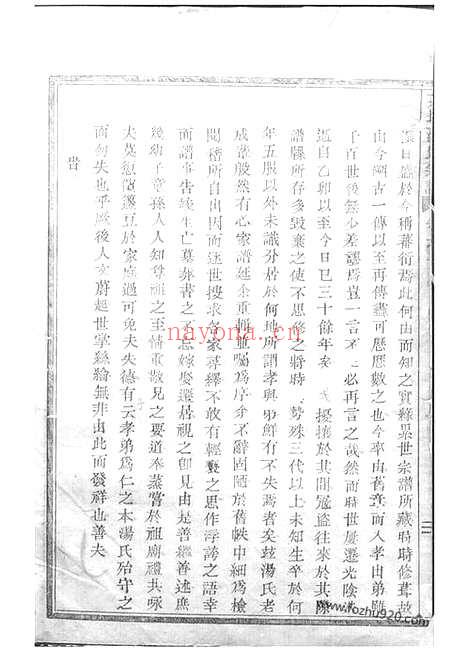 派日盛於今稱蕃衍焉此何由而知之實緣吳世宗譜所藏時時修葺故
由今溯古一傳以至再傳盡可歷歷數之也今率由舊章而入孝由弟雖
千百世後無心差謬焉豈一言不必再言之哉然而時世屢遷光陰
迅自乙卯以至今日已三十餘年矣 擾攘於其間冠盜往來於其際
譜牒所存多毀棄之使不思修之將時 勢殊三代以上未知生卒於何
年五服以外未識分居於何地所謂孝與弟鮮有不失焉者矣茲湯氏老
成輩殷然有心家譜延余重 囑為序余不辭固陋於舊帙中細為檢
閱稽所自出因而逐世搜求各家尋繹不敢有輕褻之思作浮誇之語幸
而譜事告竣生亡墓葬書之 嫁娶遷居視之即見由是善繼善述庶
幾幼子童孫人人知尊祖之至情重敬兄之要道奉蒸嘗於祖廟禮共咏
夫莫愆 籩豆於家庭過可免夫失德有云孝弟為仁之本湯氏殆守之
而勿失也乎厥後人文蔚起世掌絲綸無非由此而發祥也善夫
旹
nayona.cn
www.fozhu920.com